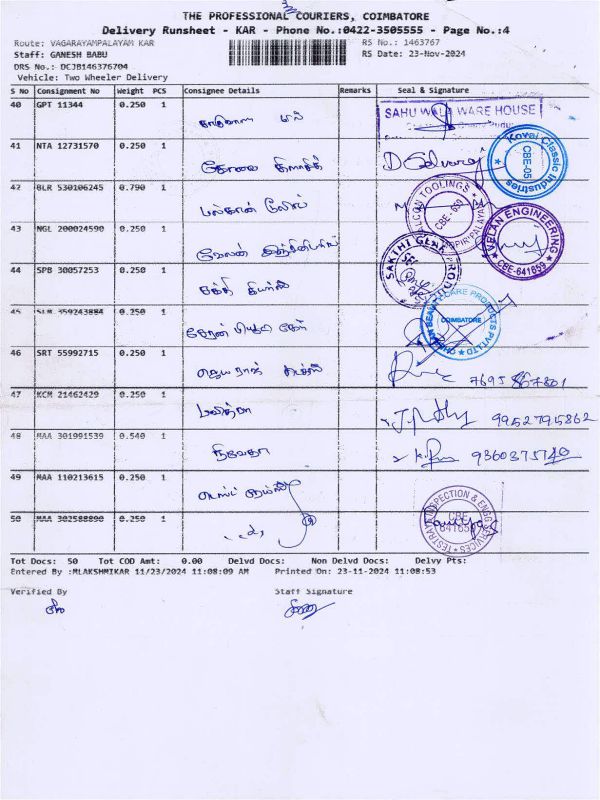 THE PROFESSIONAL COURIERS, COIMBATORE
Delivery Runsheet - KAR - Phone No.:0422-3505555 - Page No.:4
Route: VAGARAYAMPALAYAM KAR
RS No.: 1463767
Staff: GANESH BABU
RS Date: 23-Nov-2024
DRS No.: DCJB146376704
Vehicle: Two Wheeler Delivery
S No Consignment No Weight PCS Consignee Details Remarks Seal & Signature
40 GPT 11344 0.250 1
SAHU WALA WARE HOUSE
41 NTA 12731570 0.250 1
கோவை கிளாசிக்
D Selvaraj
Kovai Classic Industries
CBE-05
42 BLR 530106245 0.790 1
பல்கான் டூல்ஸ்
TOOLINGS
43 NGL 200024590 0.250 1
வேலன் இஞ்சினியரிங்
VELAN ENGINEERING
CBE-641659
44 SPB 30057253 0.250 1
சக்தி கியர்ஸ்
SAKTHI GEAR PRODUCTS
45 SLM 359243884 0.250 1
BEAUTY CARE PRODUCTS PVT LTD
COIMBATORE
46 SRT 55992715 0.250 1
47 KCM 21462429 0.250 1
பவித்ரா
9952795862
48 MAA 301991539 0.540 1
நிவேதா
9360375740
49 MAA 110213615 0.250 1
50 MAA 302588890 0.250 1
INSPECTION & ENGG SERVICES
CBE
Tot Docs: 50 Tot COD Amt: 0.00 Delvd Docs: Non Delvd Docs: Delvy Pts:
Entered By :MLAKSHMIKAR 11/23/2024 11:08:09 AM Printed On: 23-11-2024 11:08:53
Verified By
Staff Signature